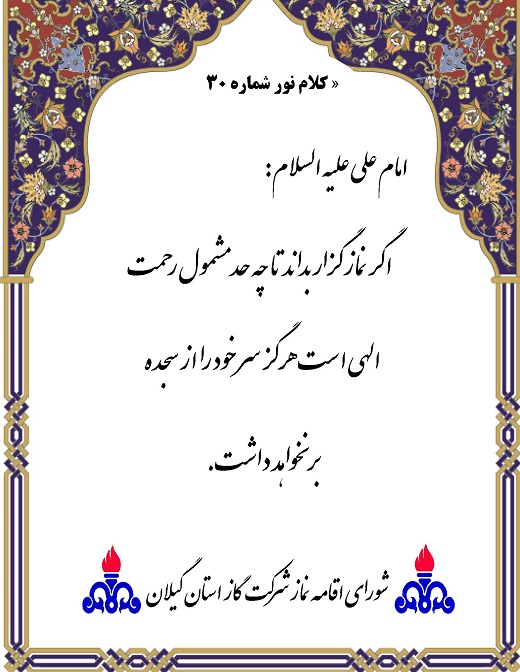 « کلام نور شماره ۳۰
امام علی علیه السلام:
اگر نمازگزار بداند تا چه حد مشمول رحمت
الهی است هرگز سر خود را از سجده
بر نخواهد داشت.
شورای اقامه نماز شرکت گاز استان گیلان